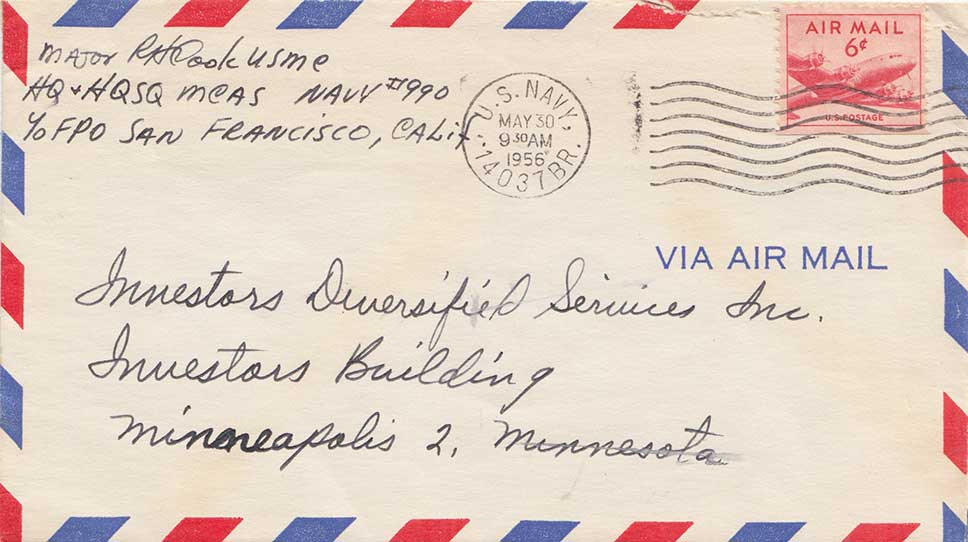 Major RH Cook USMC
HQ + HQSQ MCAS NAVY #990
℅ FPO SAN FRANCISCO, CALIF
U.S. NAVY,
MAY 30
9 30 AM
1956
14037 BR.
AIR MAIL
6¢
U.S. POSTAGE
VIA AIR MAIL
Investors Diversified Services Inc.
Investors Building
Minneapolis 2, Minnesota